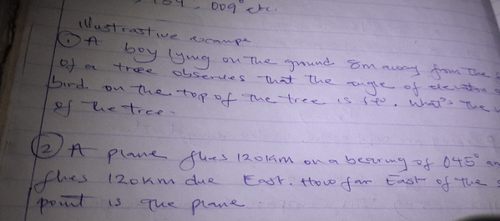 009° etc.
illustrative example
① A boy lying on the ground 8m away from the
of a tree observes that the angle of elevation
bird on the top of the tree is What's the
of the tree.
② A plane flies 120km on a bearing of 045°
flies 120km due East. How far East of the
point is the plane.